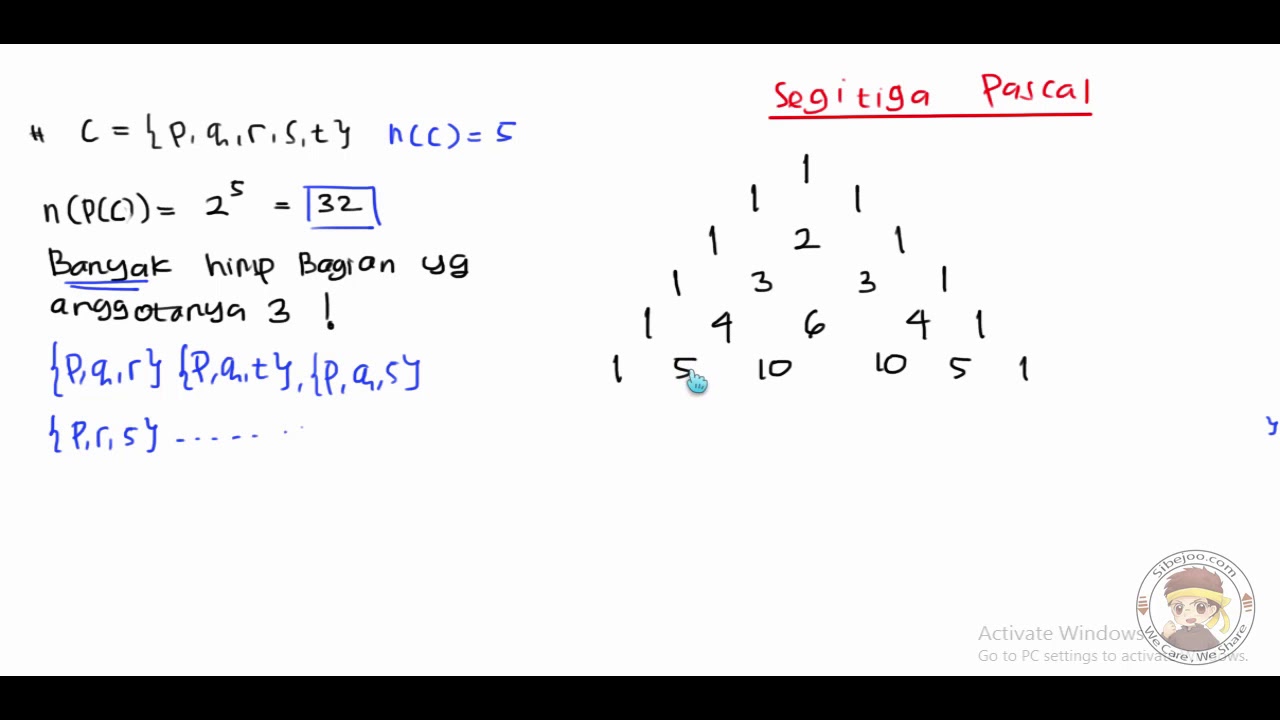 # C = {p, q, r, s, t} n(C) = 5
n(P(C)) = 2⁵ = 32
Banyak himp Bagian yg
anggotanya 3 !
{p, q, r} {p, q, t}, {p, q, s}
{p, r, s} ........
Segitiga Pascal
1
1 1
1 2 1
1 3 3 1
1 4 6 4 1
1 5 10 10 5 1
}
Sibejoo.com
We Care, We Share
Activate Windows
Go to PC settings to activate Windows.